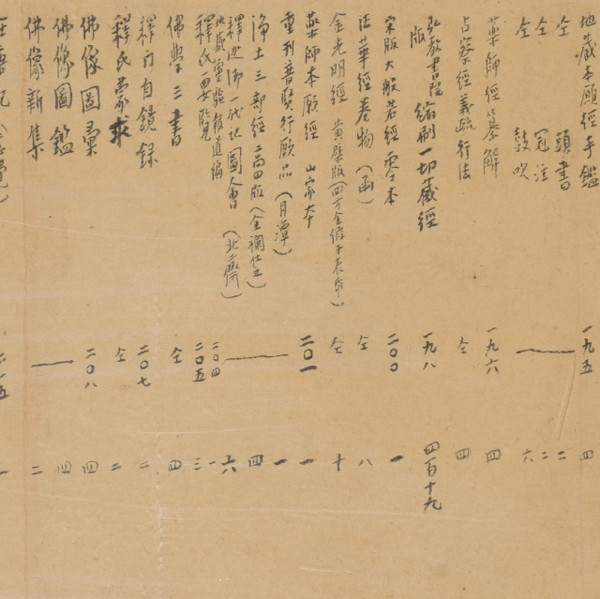 地蔵本願經手鑑 一九五 四
仝 頭書 二
仝 冠注 二
仝 鼓吹 六
藥師經纂解 一九六 四
占察經義疏行法 仝 四
弘教書院版 縮刷一切蔵經 一九八 四百十九
宋版大般若經零本 二〇〇 一
法華經巻物(函) 仝 八
金光明經 黄檗版 仝 十
藥師本願經 山家本 二〇一 一
重刊普賢行願品(月潭) 一
浄土三部經 四
釋迦御一代記圖會(北斎) 六
地蔵霊験報道編 二〇四 一
釋氏要覧 二〇五 三
佛學三書 仝 四
釋門自鏡録 二〇七 二
釋氏蒙求 仝 二
佛像圖彙 二〇八 四
佛像圖鑑 四
佛像新集 二
二一五 一